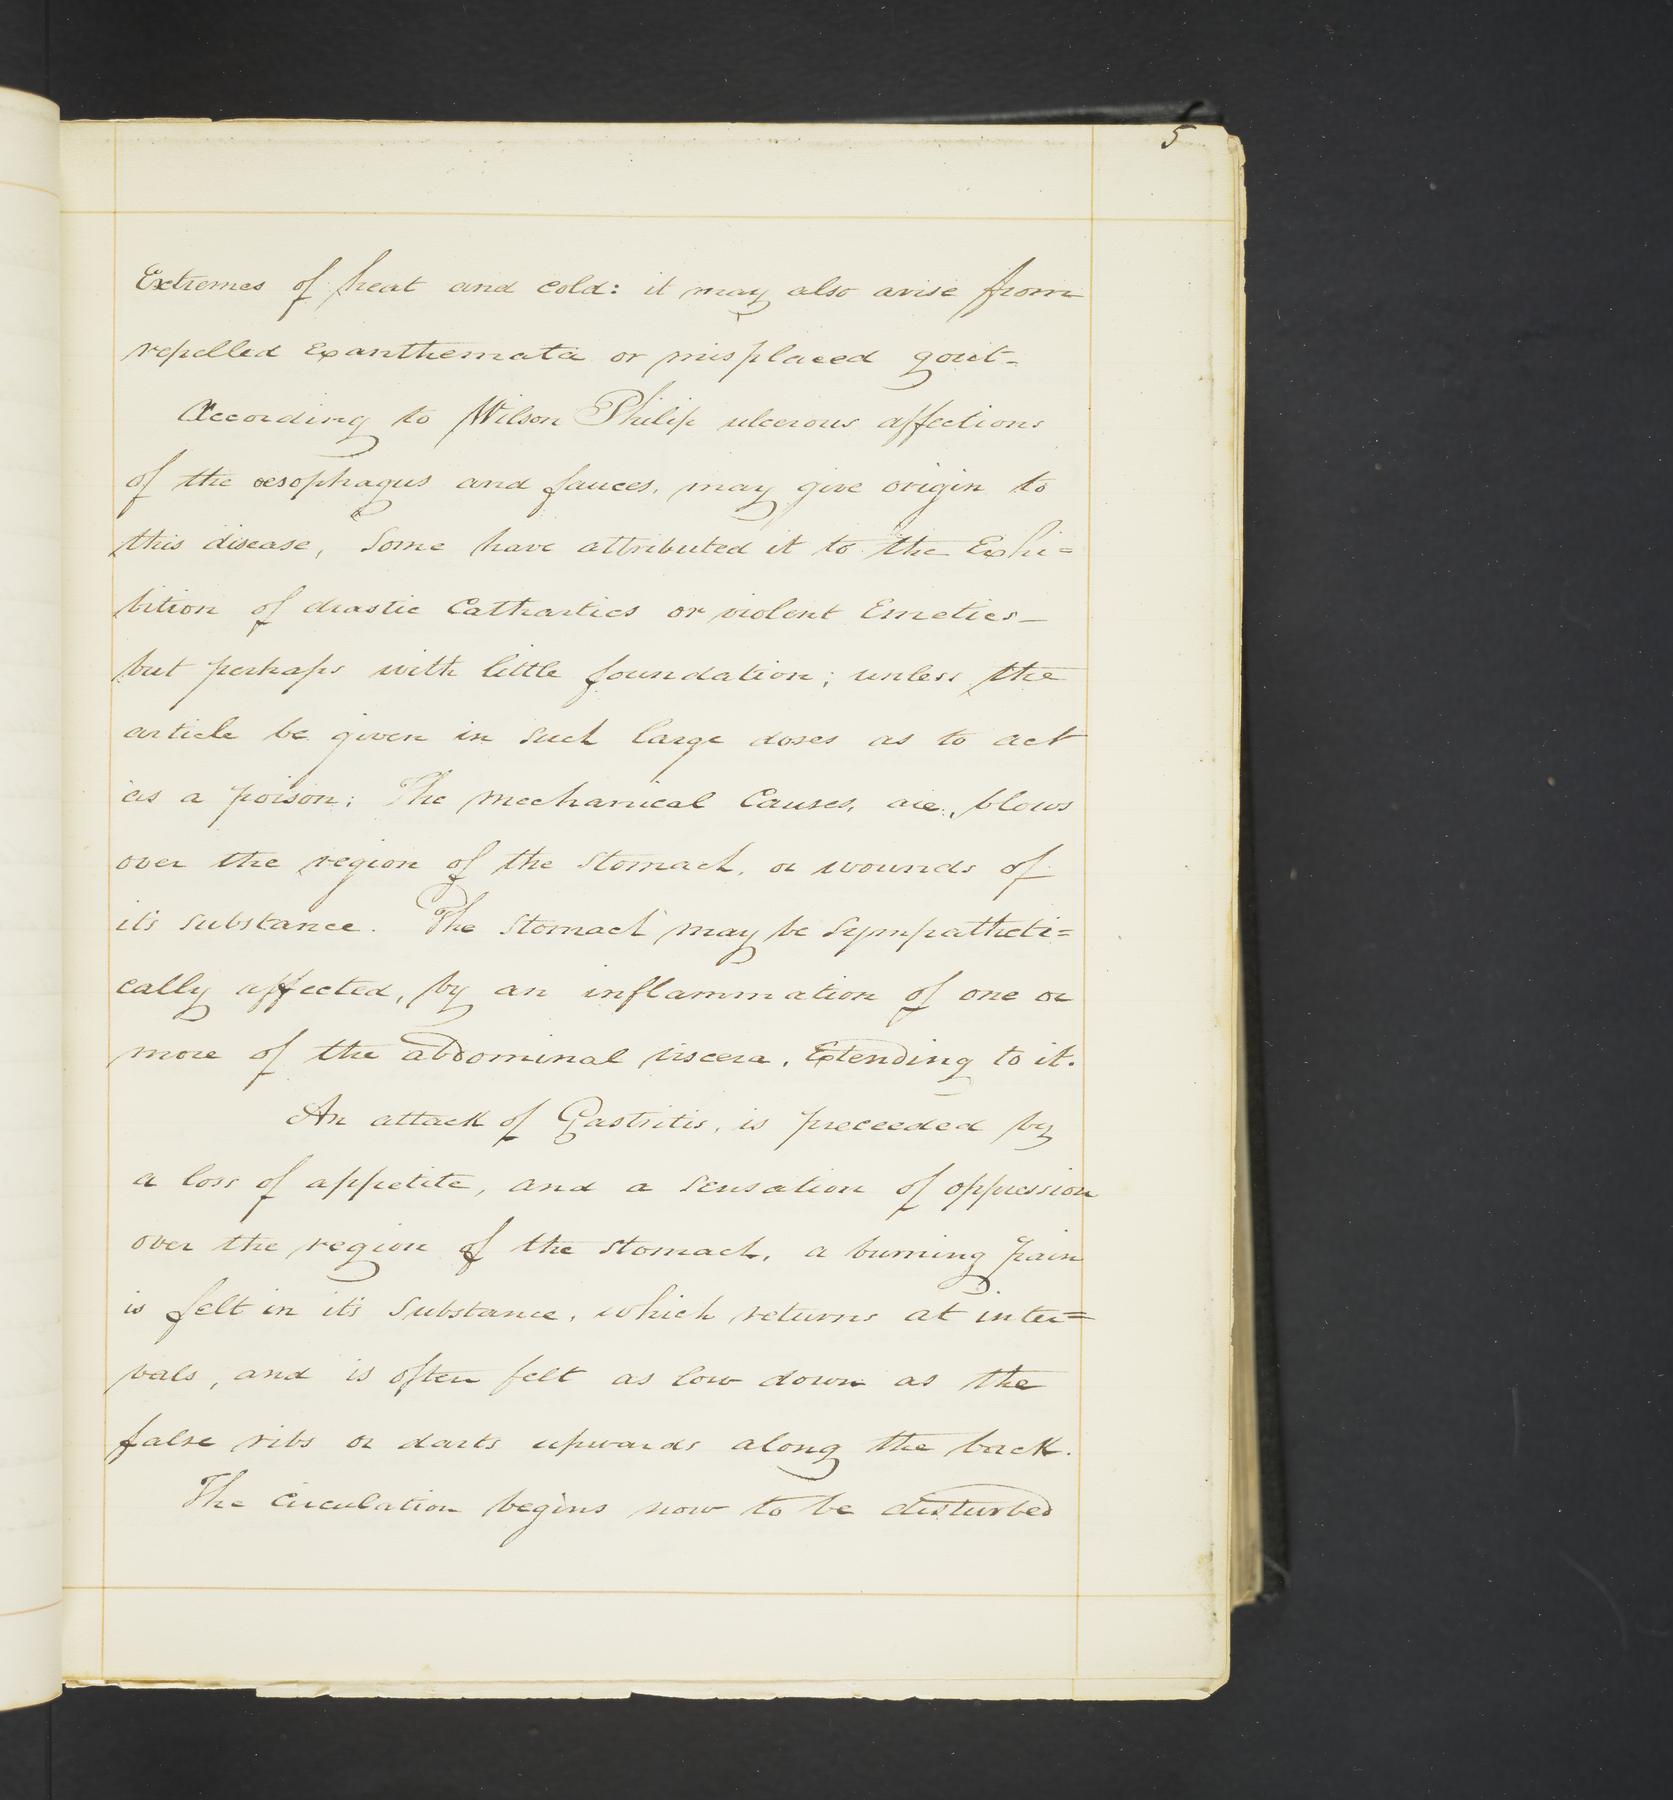 5
Extremes of heat and cold: it may also arise from
repelled Exanthemata or misplaced gout-
According to Wilson Philip ulcerous affections
of the oesophagus and fauces, may give origin to
this disease, Some have attributed it to the Exhi=
bition of drastic Cathartics or violent Emetics-
but perhaps with little foundation; unless the
article be given in such large doses as to act
as a poison; The mechanical Causes, are, blows
over the region of the stomach, or wounds of
it's substance. The stomach may be sympatheti=
cally affected, by an inflammation of one or
more of the abdominal viscera, Extending to it.
An attack of Gastritis, is preceeded by
a loss of appetite, and a sensation of oppression
over the region of the stomach, a burning pain
is felt in it's substance, which returns at inter=
vals, and is often felt as low down as the
false ribs or darts upwards along the back.
The Circulation begins now to be disturbed